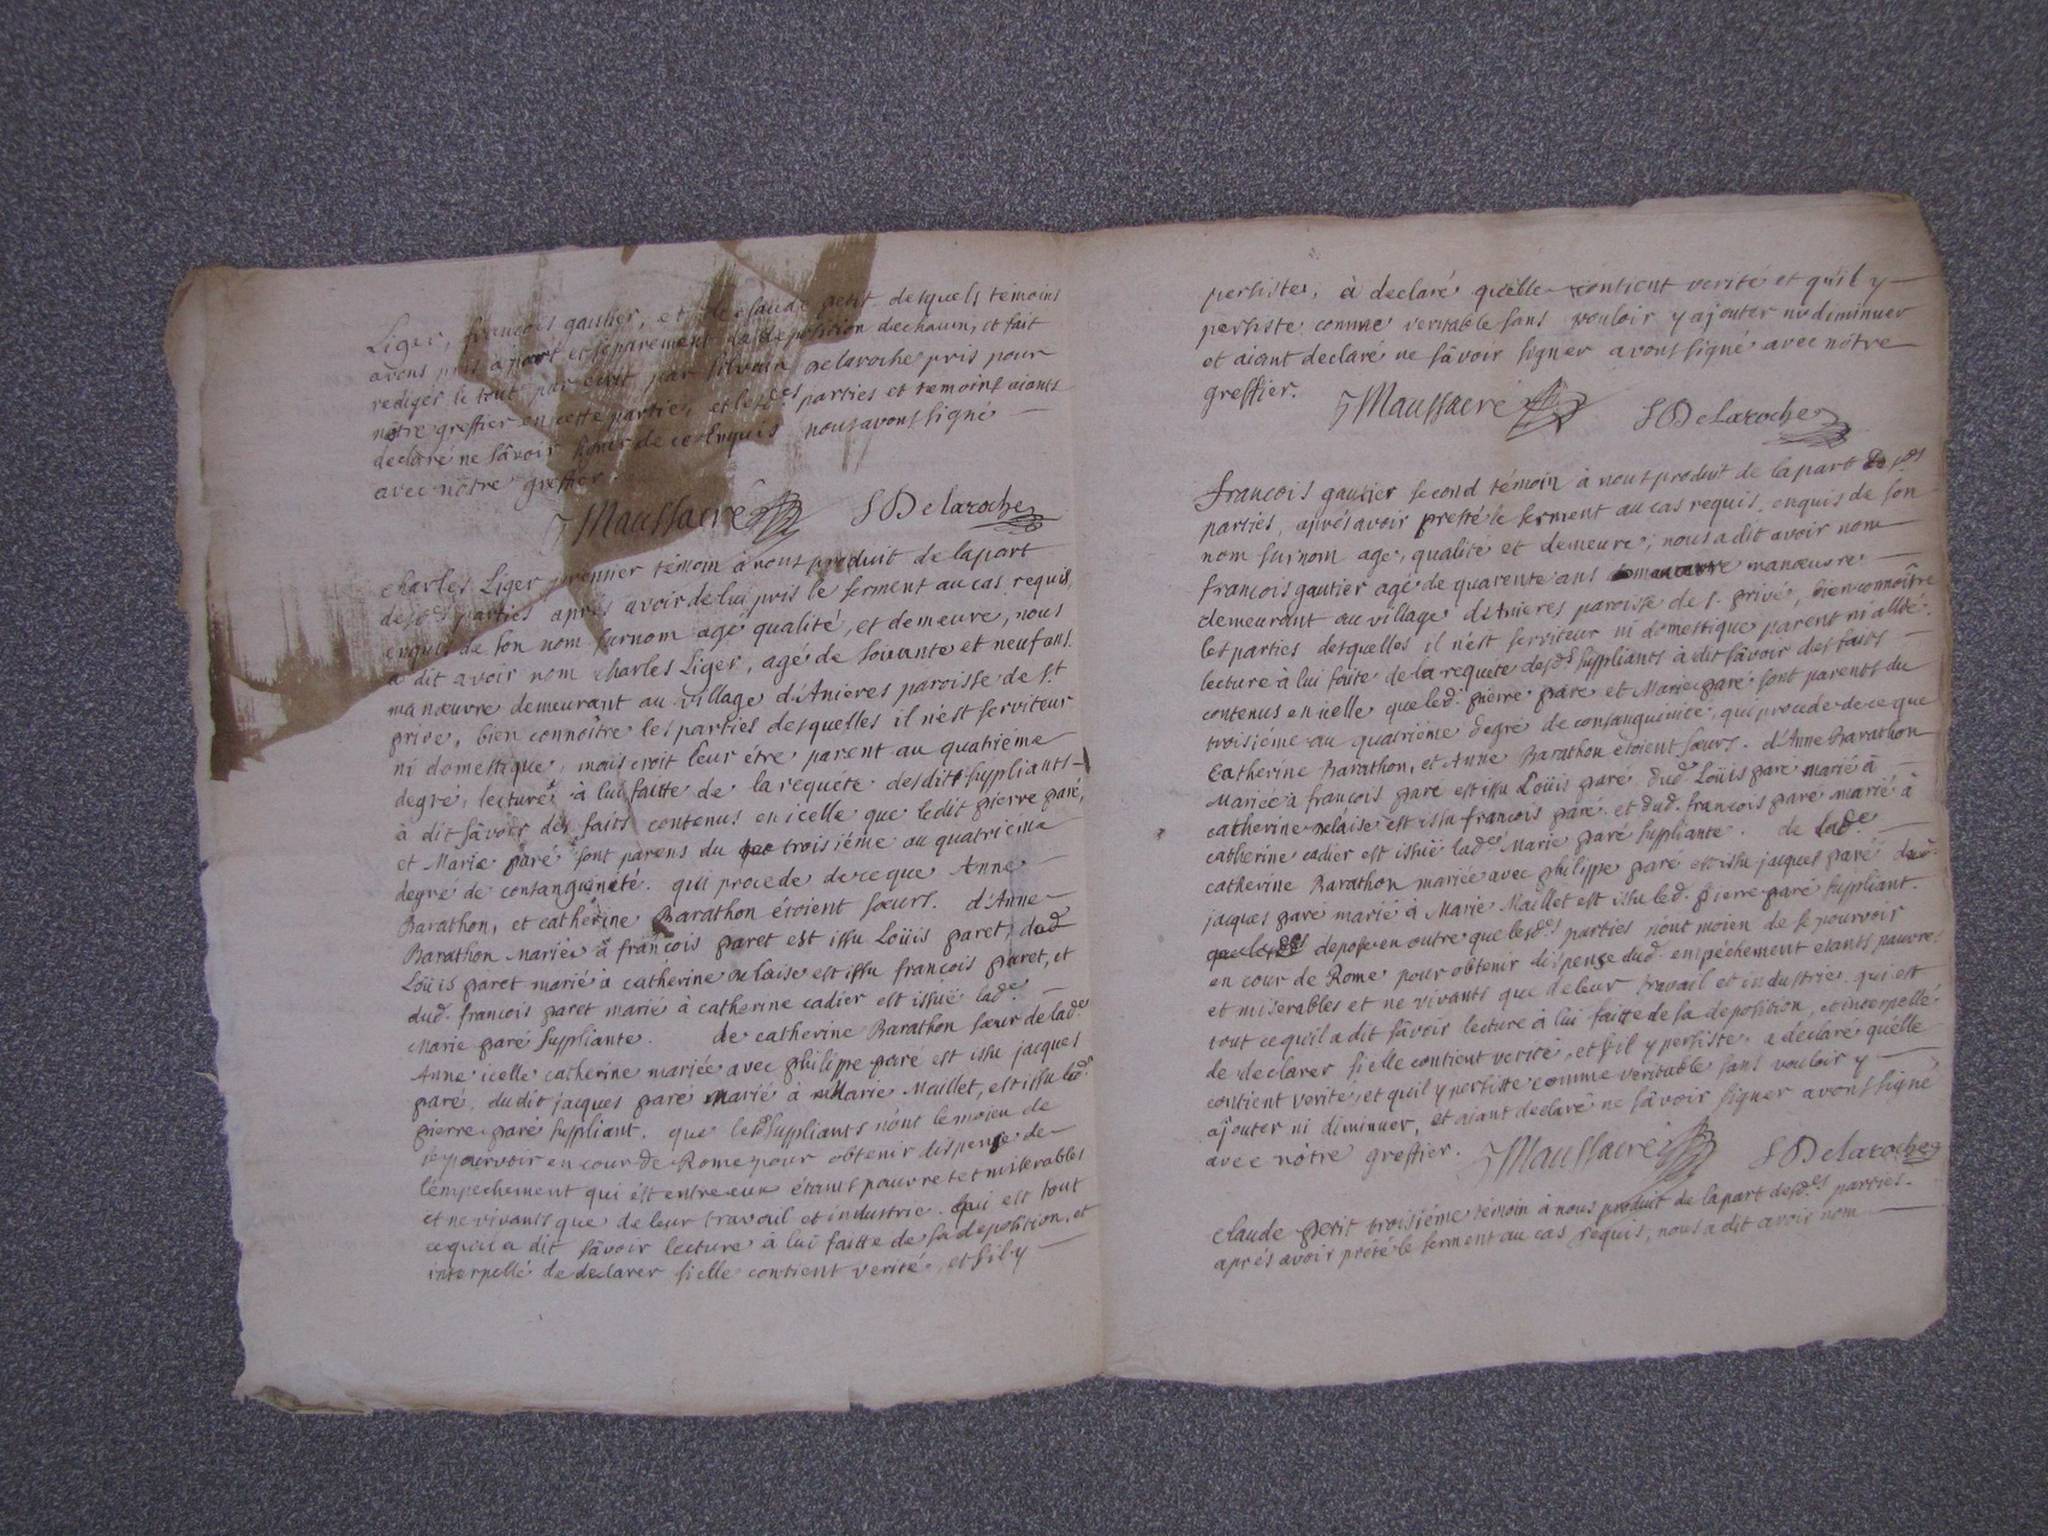 Liger, françois gautier, et de claude petit desquels témoins
avons pris apart et separement la deposition dechacun, et fait
rediger le tout par écrit par silvain Delaroche pris pour
nôtre greffier en cette partie, et lesd.es parties et temoins aiants
declaré ne sâvoir signer de ce enquis nous avons signé
avec nôtre greffier.
Maussacré SDelaroche
charles Liger premier témoin à nous produit de la part
desd.es parties aprés avoir de lui pris le serment au cas requis,
enquis de son nom surnom age qualité, et demeure, nous
a dit avoir nom charles Liger, agé de soixante et neuf ans.
manœuvre demeurant au village d'Anieres paroisse de s.t
privé, bien connoître les parties desquelles il n'est serviteur
ni domestique, mais croit leur étre parent au quatriéme
degré, lecture à lui faitte de la requéte desdits suppliants
à dit sâvoir des faits contenus en icelle que ledit pierre paré,
et Marie paré sont parens du troisiéme au quatriéme
degré de consanguinété. qui procede de ce que Anne
Barathon, et catherine Barathon étoient sœurs. d'Anne
Barathon Mariée à françois paret est issu Loüis paret, dud
Loüis paret marié à catherine Melaise est issu françois paret, et
dud. françois paret marié à catherine cadier est issuë lad.e
Marie paré suppliante. de catherine Barathon sœur de lad.e
Anne icelle catherine mariée avec philippe paré est issu jacques
paré, dudit jacques paré marié à Marie Maillet, est issu led.
pierre paré suppliant. que lesd. suppliants n'ont le moien de
se pourvoir en cour de Rome pour obtenir dispense de
l'empechement qui ést entre eux étants pauvres et miserables
et ne vivants que de leur travail et industrie. qui est tout
ce qu'il a dit sâvoir lecture à lui faitte de sa deposition, et
interpellé de declarer si elle contient verité, et s'il y
persiste, à declaré qu'elle contient verité et qu'il y
persiste comme veritable sans vouloir y ajouter ni diminuer
et aiant declaré ne sâvoir signer avons signé avec nôtre
greffier.
Maussacré SDelaroche
françois gautier second témoin à nous produit de la part desd.es
parties, aprés avoir presté le serment au cas requis, enquis de son
nom surnom age, qualité et demeure, nous a dit avoir nom
françois gautier agé de quarente ans manœuvre
demeurant au village d'Anieres paroisse de s. privé, bien connoître
les parties desquelles il n'est serviteur ni domestique parent ni allié.
lecture à lui faite de la requete desd. suppliants à dit sâvoir des faits
contenus en icelle que led. pierre paré et Marie paré sont parents du
troisiéme au quatriéme degré de consanguinité, qui procede de ce que
Catherine Barathon, et Anne Barathon étoient sœurs. d'Anne Barathon
Mariée à françois paré est issu Loüis paré. dud. Loüis paré marié à
catherine Melaise est issu françois paré. et dud. françois paré marié à
catherine cadier est issuë lad.e Marie paré suppliante. de lad.e
catherine Barathon mariée avec philippe paré est issu jacques paré dud.
jacques paré marié à Marie Maillet est issu led. pierre paré suppliant.
depose en outre que lesd.es parties n'ont moien de se pourvoir
en cour de Rome pour obtenir dispense dud. empéchement etants pauvres
et miserables et ne vivants que de leur travail et industrie. qui est
tout ce qu'il a dit sâvoir lecture à lui faitte de sa deposition, et interpellé
de declarer si elle contient verité, et s'il y persiste. a declaré qu'elle
contient verité, et qu'il y persiste comme veritable sans vouloir y
ajouter ni diminuer, et aiant declaré ne sâvoir signer avons signé
avec nôtre greffier. Maussacré SDelaroche
claude petit troisiéme témoin à nous produit de la part desd.es parties.
aprés avoir prété le serment au cas requis, nous a dit avoir nom